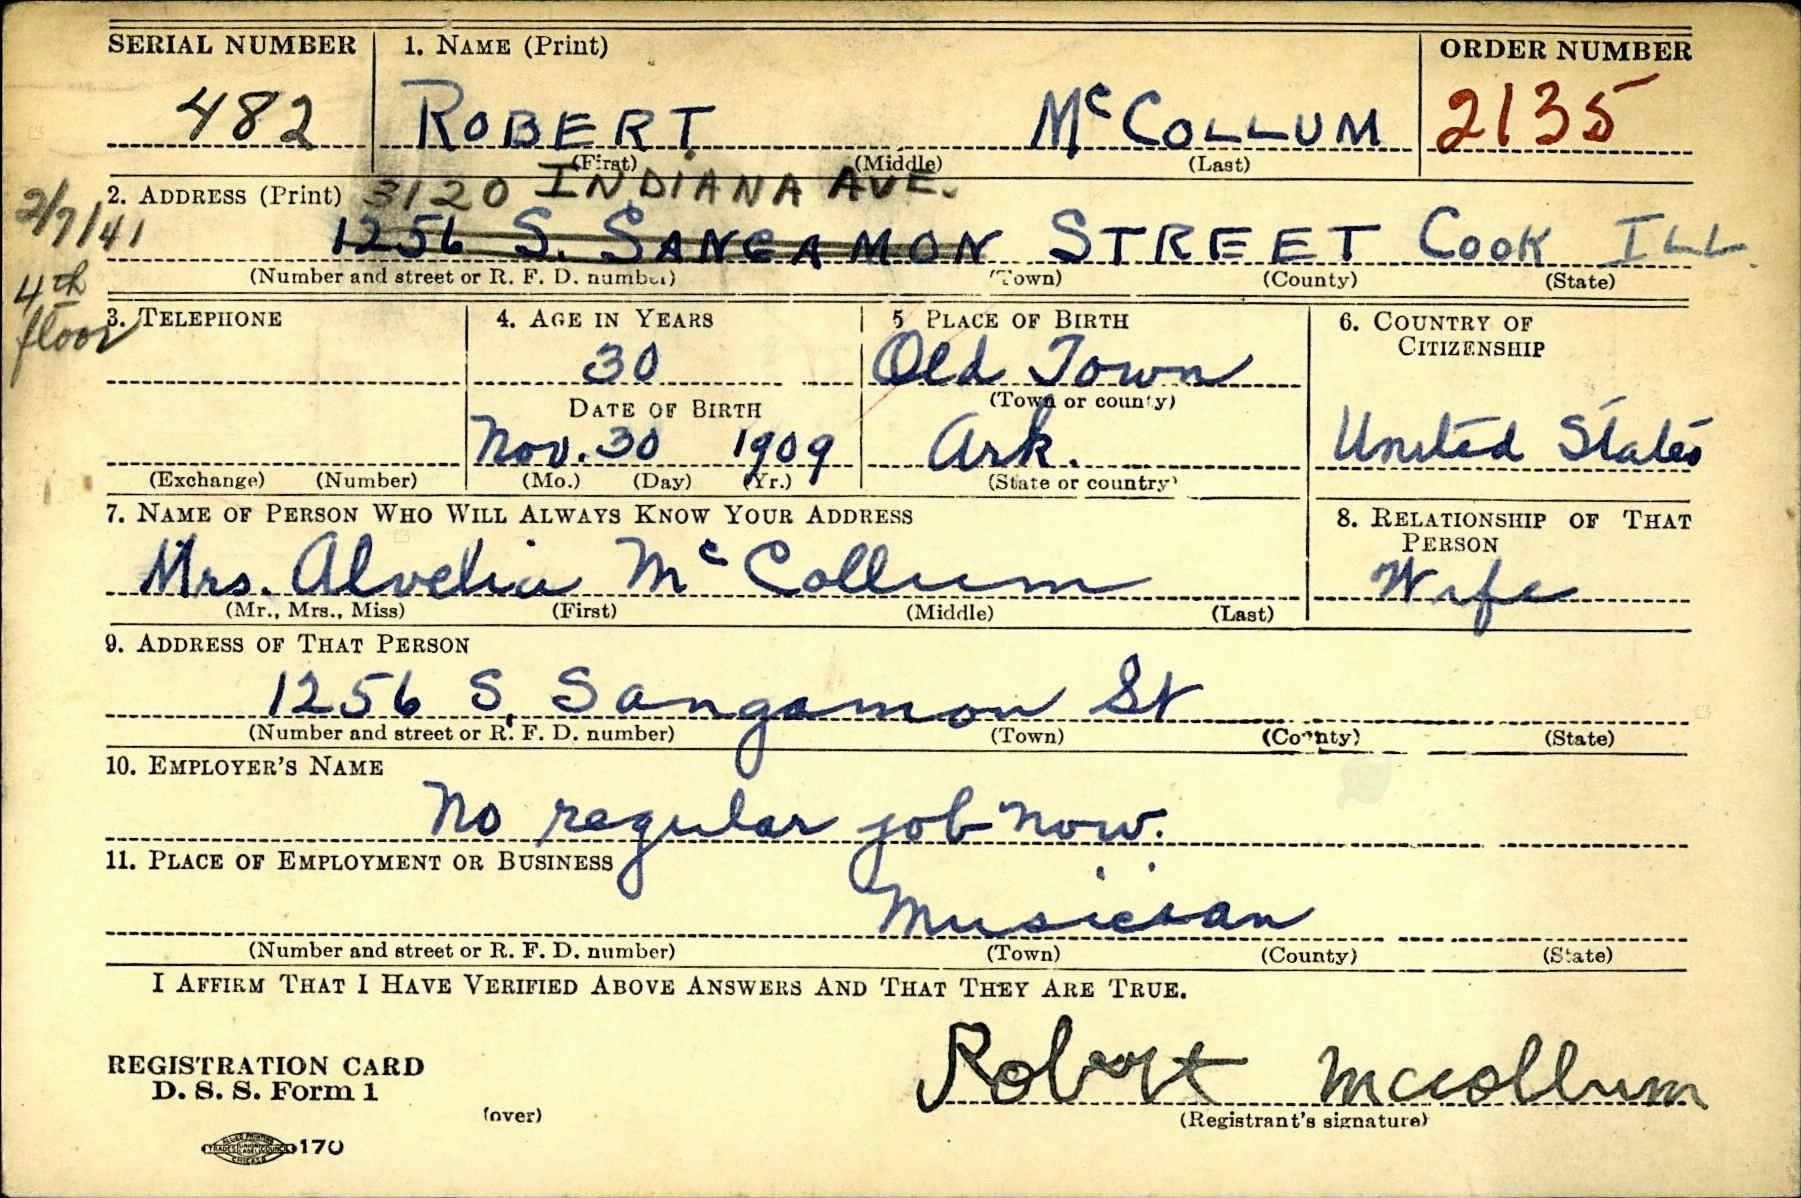 SERIAL NUMBER 1. NAME (Print) ORDER NUMBER
482 ROBERT McCOLLUM 2135
(First) (Middle) (Last)
2. ADDRESS (Print) 3120 INDIANA AVE.
2/7/41
1256 S. SANGAMON STREET COOK ILL.
(Number and street or R. F. D. number) (Town) (County) (State)
4th
floor
3. TELEPHONE 4. AGE IN YEARS 5 PLACE OF BIRTH 6. COUNTRY OF
CITIZENSHIP
30 Old Town
DATE OF BIRTH (Town or county)
Nov. 30 1909 Ark. United States
(Exchange) (Number) (Mo.) (Day) (Yr.) (State or country)
7. NAME OF PERSON WHO WILL ALWAYS KNOW YOUR ADDRESS 8. RELATIONSHIP OF THAT
PERSON
Mrs. Alvelia McCollum Wife
(Mr., Mrs., Miss) (First) (Middle) (Last)
9. ADDRESS OF THAT PERSON
1256 S. Sangamon St
(Number and street or R. F. D. number) (Town) (County) (State)
10. EMPLOYER'S NAME
No regular job now.
11. PLACE OF EMPLOYMENT OR BUSINESS
Musician
(Number and street or R. F. D. number) (Town) (County) (State)
I AFFIRM THAT I HAVE VERIFIED ABOVE ANSWERS AND THAT THEY ARE TRUE.
Robert mccollum
REGISTRATION CARD
D. S. S. Form 1
(over) (Registrant's signature)
ALLIED PRINTING
TRADES UNION LABEL COUNCIL
CHICAGO
170